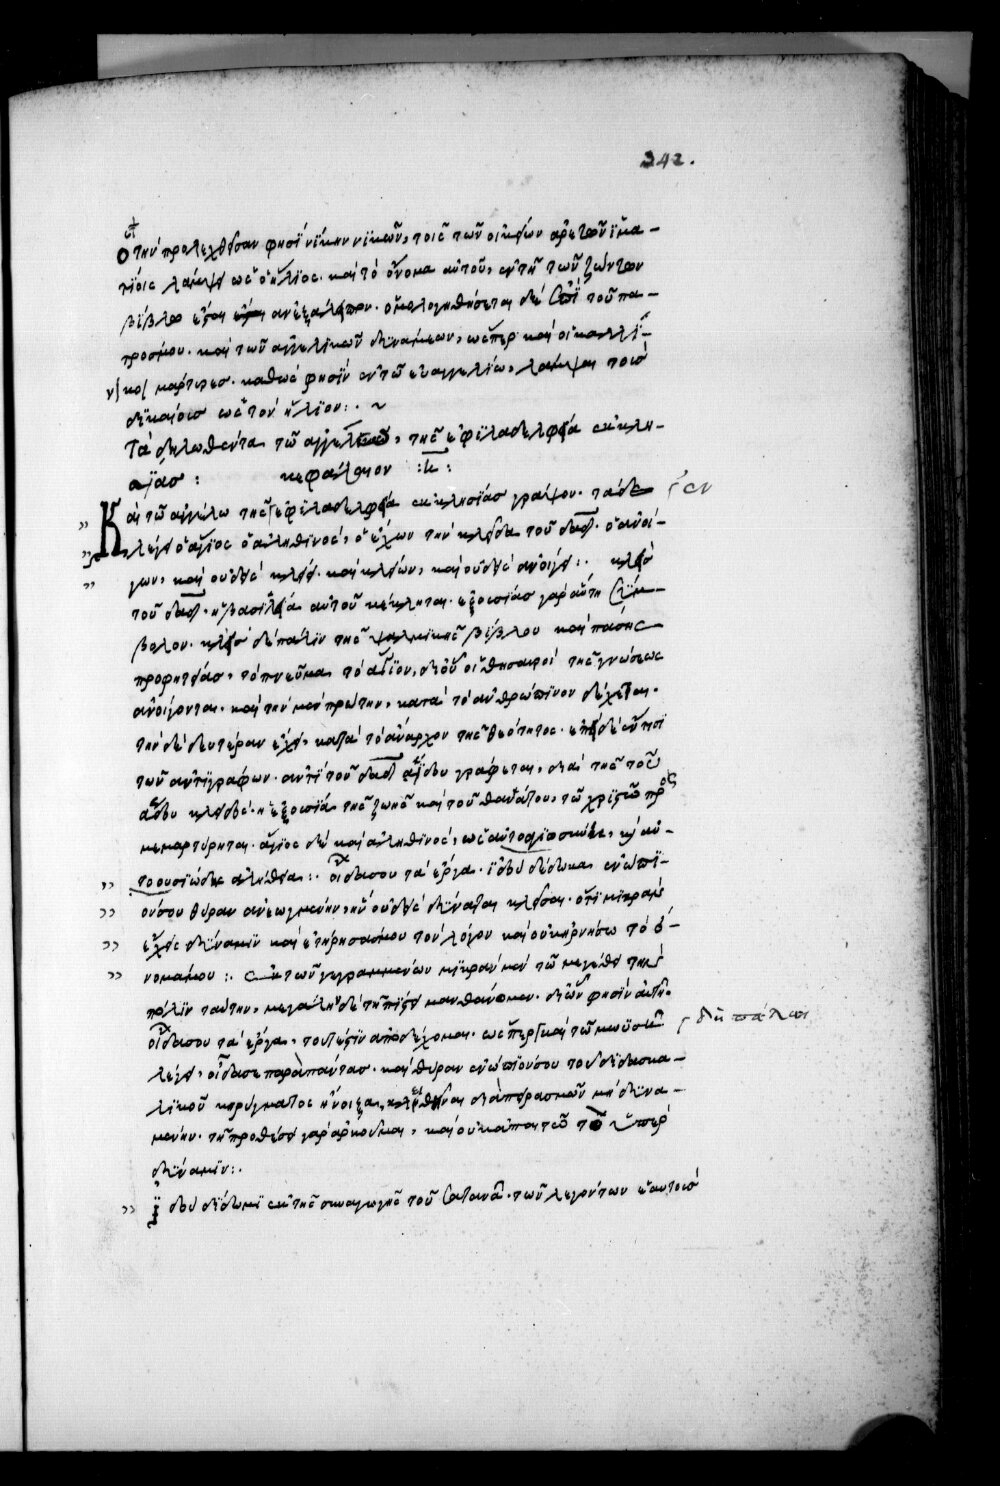 242.
ὁ τὴν προλεχθεῖσαν φησὶ νίκην νικῶν, τοῖς τῶν οἰκείων ἀρετῶν ἱμα-
τίοις λάμψει ὡς ὁ ἥλιος· καὶ τὸ ὄνομα αὐτοῦ, ἐν τῇ τῶν ζώντων
βίβλω ἔσται ἀνεξάλειπτον· ὁμολογηθήσεται δὲ ἐπὶ τοῦ πα-
προσ μου· καὶ τῶν ἀγγελικῶν δυνάμεων, ὥσπερ καὶ οἱ καλλί-
νικοι μάρτυρες· καθὼς φησὶν ἐν τῷ εὐαγγελίω, λάμψαι τοὺς
δικαίους ὡς τὸν ἥλιον:· ~
Τὰ δηλωθέντα τῶ ἀγγέλω, τῆς ἐφιλαδελφεία ἐκκλη-
σίας: κεφάλαιον :θ:
Καὶ τῶ ἀγγέλω τῆς ἐν φιλαδελφεία ἐκκλησίας γράψον· τάδε
ἐν
λέγει ὁ ἅγιος ὁ ἀληθινός, ὁ ἔχων τὴν κλεῖδα τοῦ δαδ· ὁ ἀνοί-
γων, καὶ οὐδεὶς κλείει· καὶ κλείων, καὶ οὐδεὶς ἀνοίγει:· κλεὶς
τοῦ δαδ· ἡ βασιλεία αὐτοῦ κέκληται· ἐξουσίας γὰρ αὕτη σύμ-
βολον· κλεὶς δὲ πάλιν τῆς ψαλμικῆς βίβλου καὶ πάσης
προφητείας, τὸ πνεῦμα τὸ ἅγιον, δι οὗ οἱ θησαυροὶ τῆς γνώσεως
ἀνοίγονται· καὶ τὴν μὲν πρώτην, κατὰ τὸ ἀνθρώπινον δέχεται·
τὴν δὲ δευτέραν ἔχει, κατὰ τὸ ἄναρχον τῆς θεότητος· ἐπεὶ δὲ ἔν τισι
τῶν ἀντιγράφων· ἀντὶ τοῦ δαδ ἅδου γράφεται, διὰ τῆς τοῦ
ἅδου κλειδὸς· ἡ ἐξουσία τῆς ζωῆς καὶ τοῦ θανάτου, τῶ χριστῶ προς
μεμαρτύρηται· ἅγιος δὲ καὶ ἀληθινός, ὡς αὐτοαγιοσύνη, καὶ αὐ-
τοουσιώδης ἀλήθεια:· οἶδα σου τὰ ἔργα· ἰδοὺ δέδωκα ἐνώπι-
όν σου θύραν ἀνεωγμένην, ἣν οὐδεὶς δύναται κλεῖσαι· ὅτι μικρὰν
ἔχεις δύναμιν καὶ ἐτήρησάς μου τὸν λόγον καὶ οὐκ ἠρνήσω τὸ ὄ-
νομά μου:· ἐκ τῶν γεγραμμένων μικρὰν μὲν τῶ μεγέθει τὴν
πόλιν ταύτην, μεγάλην δὲ τῇ πίστει μανθάνομεν· δι ὧν φησὶν αὐτῇ·
οἶδα σου τὰ ἔργα, τουτέστιν ἀποδέχομαι· ὥσπερ καὶ τῶ μωϋσεῖ
δὴ πάλαι
λέγει, οἶδα σε παρὰ πάντας· καὶ θύραν ἐνώπιόν σου τοῦ διδασκα-
λικοῦ κηρύγματος ἤνοιξα, κλεισθῆναι διὰ πειρασμῶν μὴ δυνα-
μένην· τῇ προθέσει γὰρ ἀρκοῦμαι, καὶ οὐκ ἀπαιτῶ τὸ ὑπὲρ
δύναμιν:·
ἰδοὺ δίδωμι ἐκ τῆς συναγωγῆς τοῦ σατανᾶ· τῶν λεγόντων ἑαυτοὺς